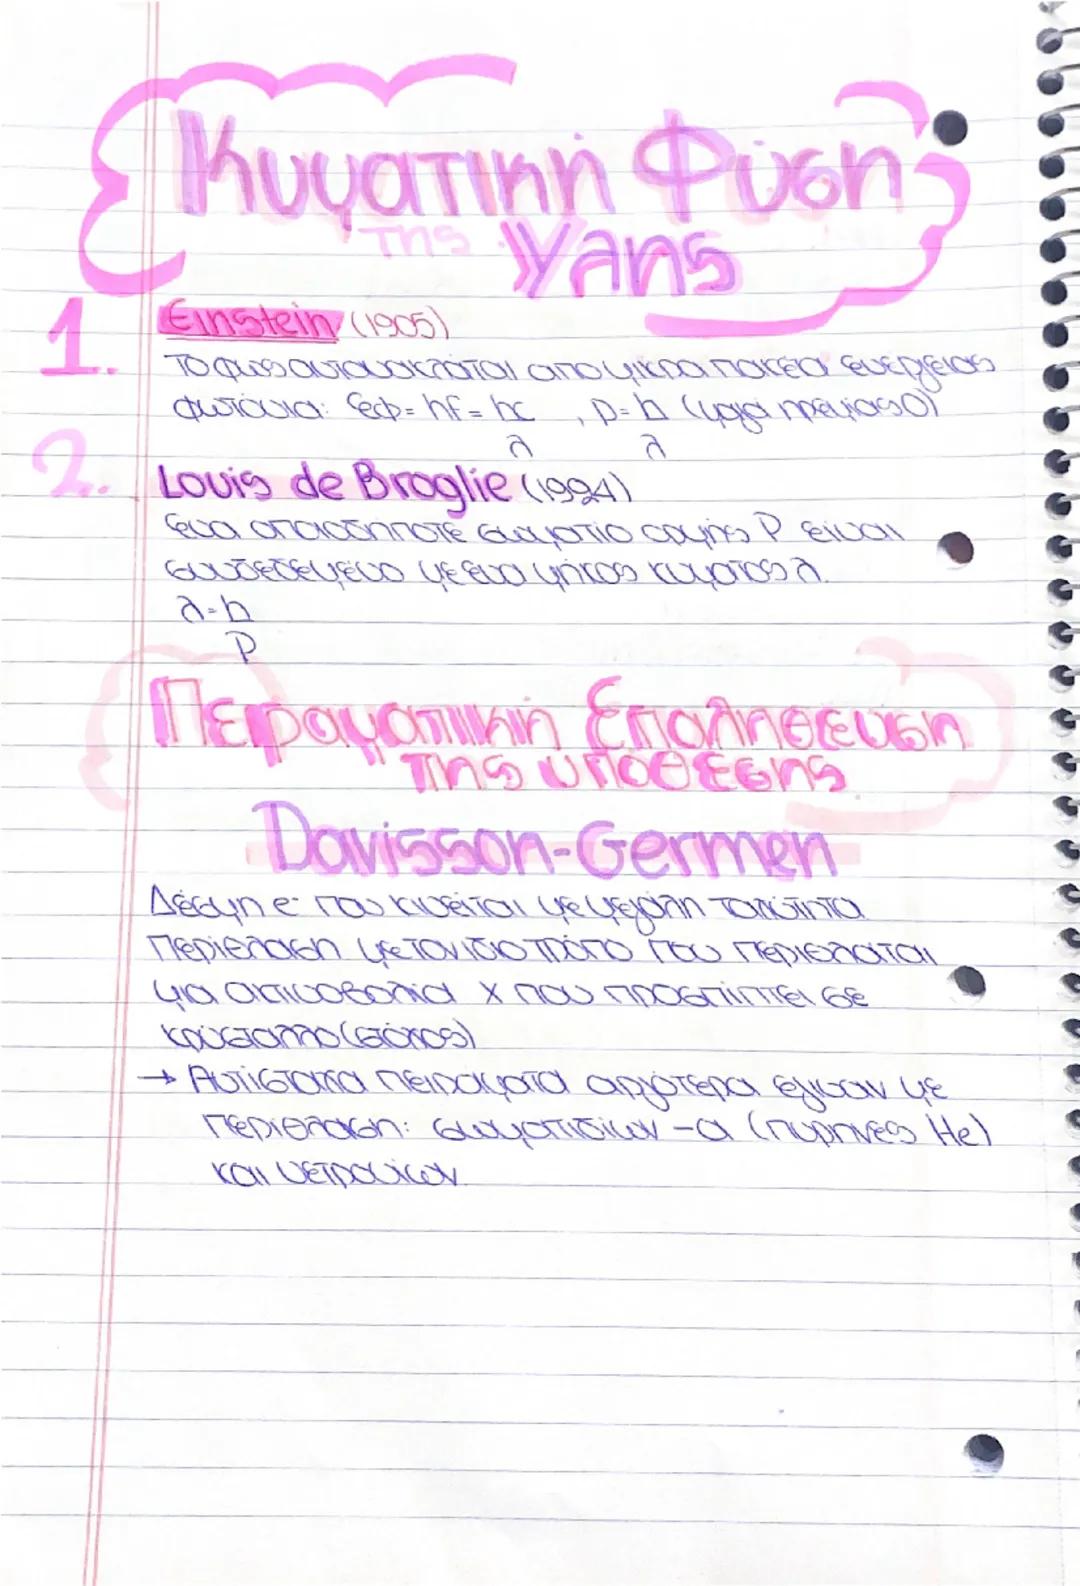 Κυματική Φύση
της Ύλης
1. Einstein (1905)
Το φως αυτανακλάται από μικρά πακέτα ενέργειας
φωτόνια: Εφ = hf = hc/λ , p = h/λ (μάζα ηρεμίας 0)
2. Louis de Broglie (1994)
Ένα οποιοδήποτε σωμάτιο ορμής P είναι
συνδεδεμένο με ένα μήκος κύματος λ.
λ = h/P
Πειραματική Επαλήθευση
της υπόθεσης
Davisson-Germen
Δέσμη e⁻ που κινείται με μεγάλη ταχύτητα
περίθλαση με τον ίδιο τρόπο που περιθλάται
μια ακτινοβολία x που προσπίπτει σε
κρύσταλλο (στόχος)
→ Αντίστοιχα πειράματα αργότερα έγιναν με
περίθλαση: σωματιδίων -α (πυρήνες He)
και νετρονίων.